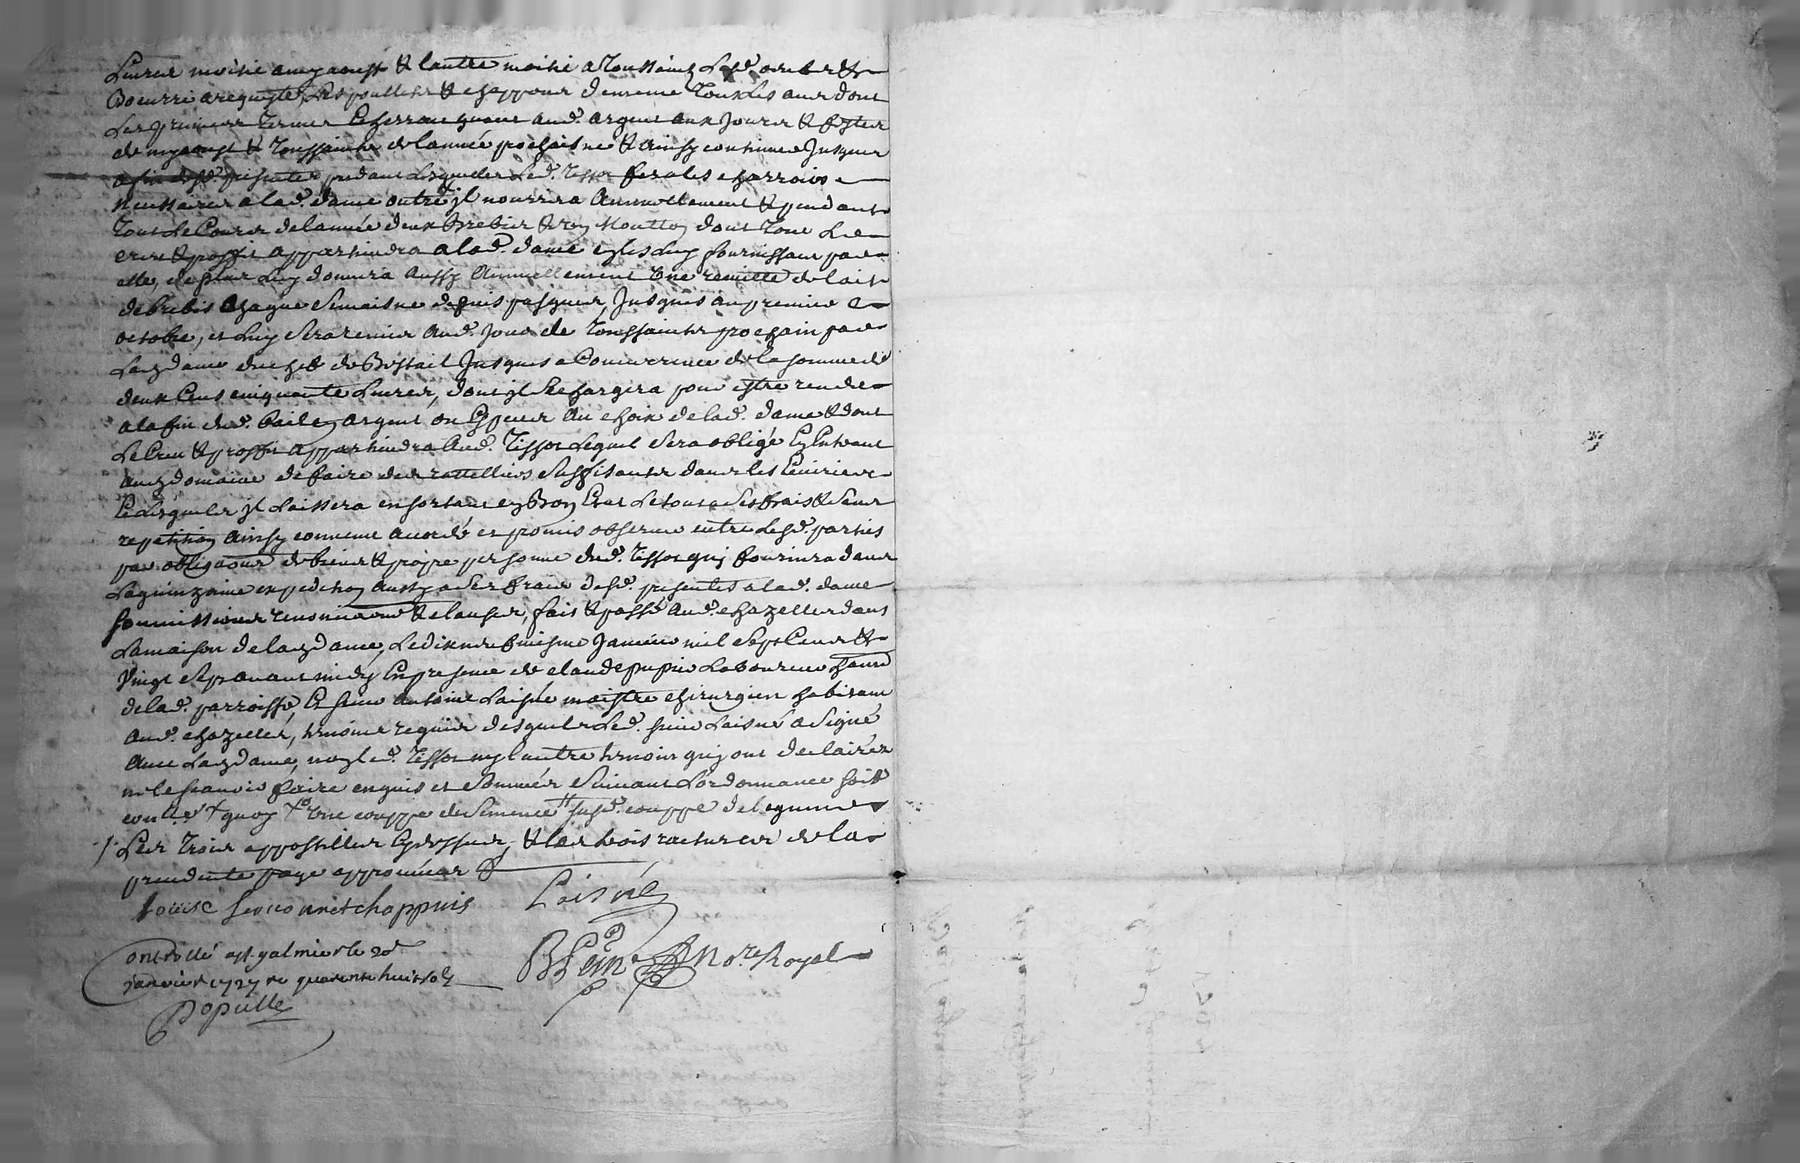 Livres moitié a my aoust & lautre moitié a Toussaint Lesd. &
Beurre a requeste, Les poullets & chappons de mesme Tous Les ans dont
Les premiers termes Escherront quant aud. argent aux Jours & festes
de my aoust & Toussaints de lannée prochaisne & Ainsy continuer Jusques
a fin desd. presentes pendant Lesquelles Led. Tissot fera les charrois
Necessaires a lad. dame outre jl nourrira Annuellement & pendant
Tout Le Cours de lannée deux Brebis & un Moutton dont Tout Le
croit & proffit appartiendra a lad. dame ey les luy fournissant par
elle, de plus Luy donnera Aussy Annuellement Une de lait
de brebis Chaque Semaisne depuis pasques Jusques au premier
octobre, et Luy Sera remis Aud. Jour de Toussaints prochain par
Lad dame du de Bestail Jusques a Concurrence de la somme de
deux Cens cinquante Livres, dont jl Se chargera pour estre rendue
a la fin dud. bail en argent ou Especes Au choix de lad. dame & dont
Le Creu & proffit appartiendra Aud. Tissot Lequel Sera obligé En Entrant
aud domaine de faire des rattelliers Suffisants dans les Ecuries
Lesquels jl Laissera en sortant en Bon Etat Le tout a Ses frais & Sans
repetition Ainsy comme accordé et promis observer entre Lesd. parties
par obligaons de biens & propre personne dud. Tissot quj fournira dans
La quinzaine expedition Aussy a Ses fraix desd. presentes a lad. dame
Soumissions renonciaons & clauses, fait & passé Aud. chazelles dans
La maison de lad dame, Le dixneufviesme Janvier mil Sept Cens &
Vingt Sept avant midy En presence de claude pupier Laboureur
de lad. parroisse, Et Sieur Antoine Laisné maistre chirurgien habitant
Aud. chazelles, temoins requis desquels Led. sieur Laisné a Signé
Avec Lad dame, non led. Tissot ny l'autre temoin quj ont declairé
ne le scavoir faire enquis et Sommés Suivant L'ordonnance
+ quoy + Une couppe de Semence susd. couppe de legumes
Les Trois appostilles Cy dessus, & les trois ratures de la
presente page approuvées &
Louise chappuis Laisné
Controllé a st galmier le 20e
Janvier 1727 re quarante huit sols
No.re Royal
Populle